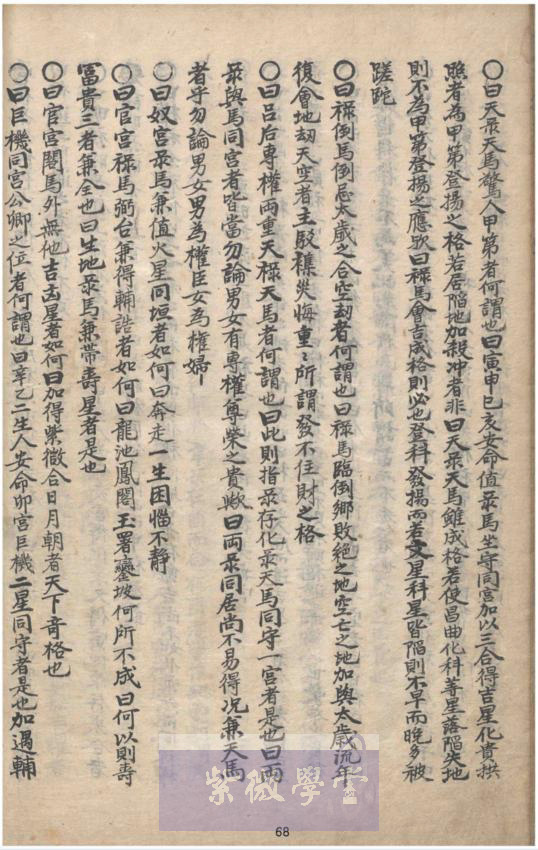 〇曰天彔天馬驚人甲第者何謂也曰寅申巳亥安命值彔馬坐守同宮加以三合得吉星化貴拱
照者為甲第登揚之格若居陷地加殺冲者非曰天彔天馬雖成格若使昌曲化科等星落陷失地
則不為甲第登揚之應歟曰祿馬會吉成格則必也登科發揚而若文星科星皆陷則不早而晚多被
蹉跎
〇曰祿倒馬倒忌太歲之合空刼者何謂也曰祿馬臨倒鄉敗絕之地空亡之地加與太歲流年
復會地刼天空者主駁襍災悔重〻所謂發不住財之格
〇曰呂后專權両重天祿天馬者何謂也曰此則指彔存化彔天馬同守一宮者是也曰両
彔與馬同宮者皆當勿論男女有專權尊荣之貴歟曰両彔同居尚不易得况兼天馬
者乎勿論男女男為權臣女為權婦
〇曰奴宮彔馬兼值火星同垣者如何曰奔走一生困惱不静
〇曰官宮祿馬弼台兼得輔誥者如何曰龍池鳳閣玉署鑾坡何所不成曰何以則壽
富貴三者兼全也曰生地彔馬兼帶壽星者是也
〇曰官宮閣馬外無他吉凶星者如何曰加得紫微合日月朝者天下奇格也
〇曰巨機同宮公卿之位者何謂也曰辛乙二生人安命卯宮巨機二星同守者是也加遇輔
紫微學堂
68